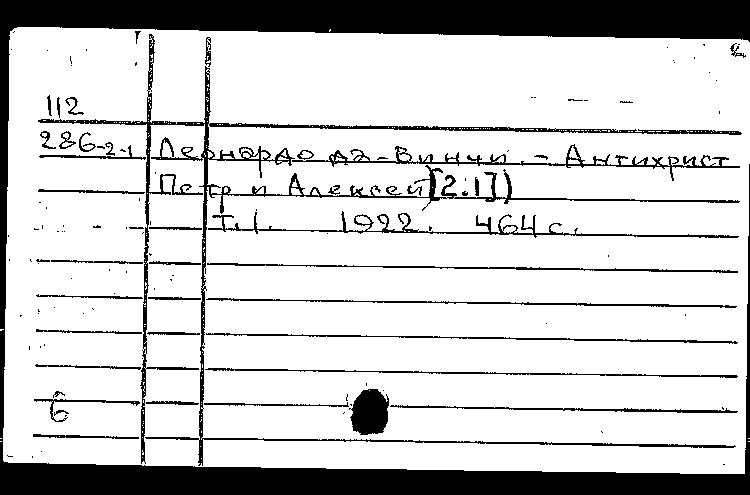 2
112
286-2-1 Леонардо да-Винчи. - Антихрист
Петр и Алексей [2.1])
Т. 1. 1922. 464 с.
6